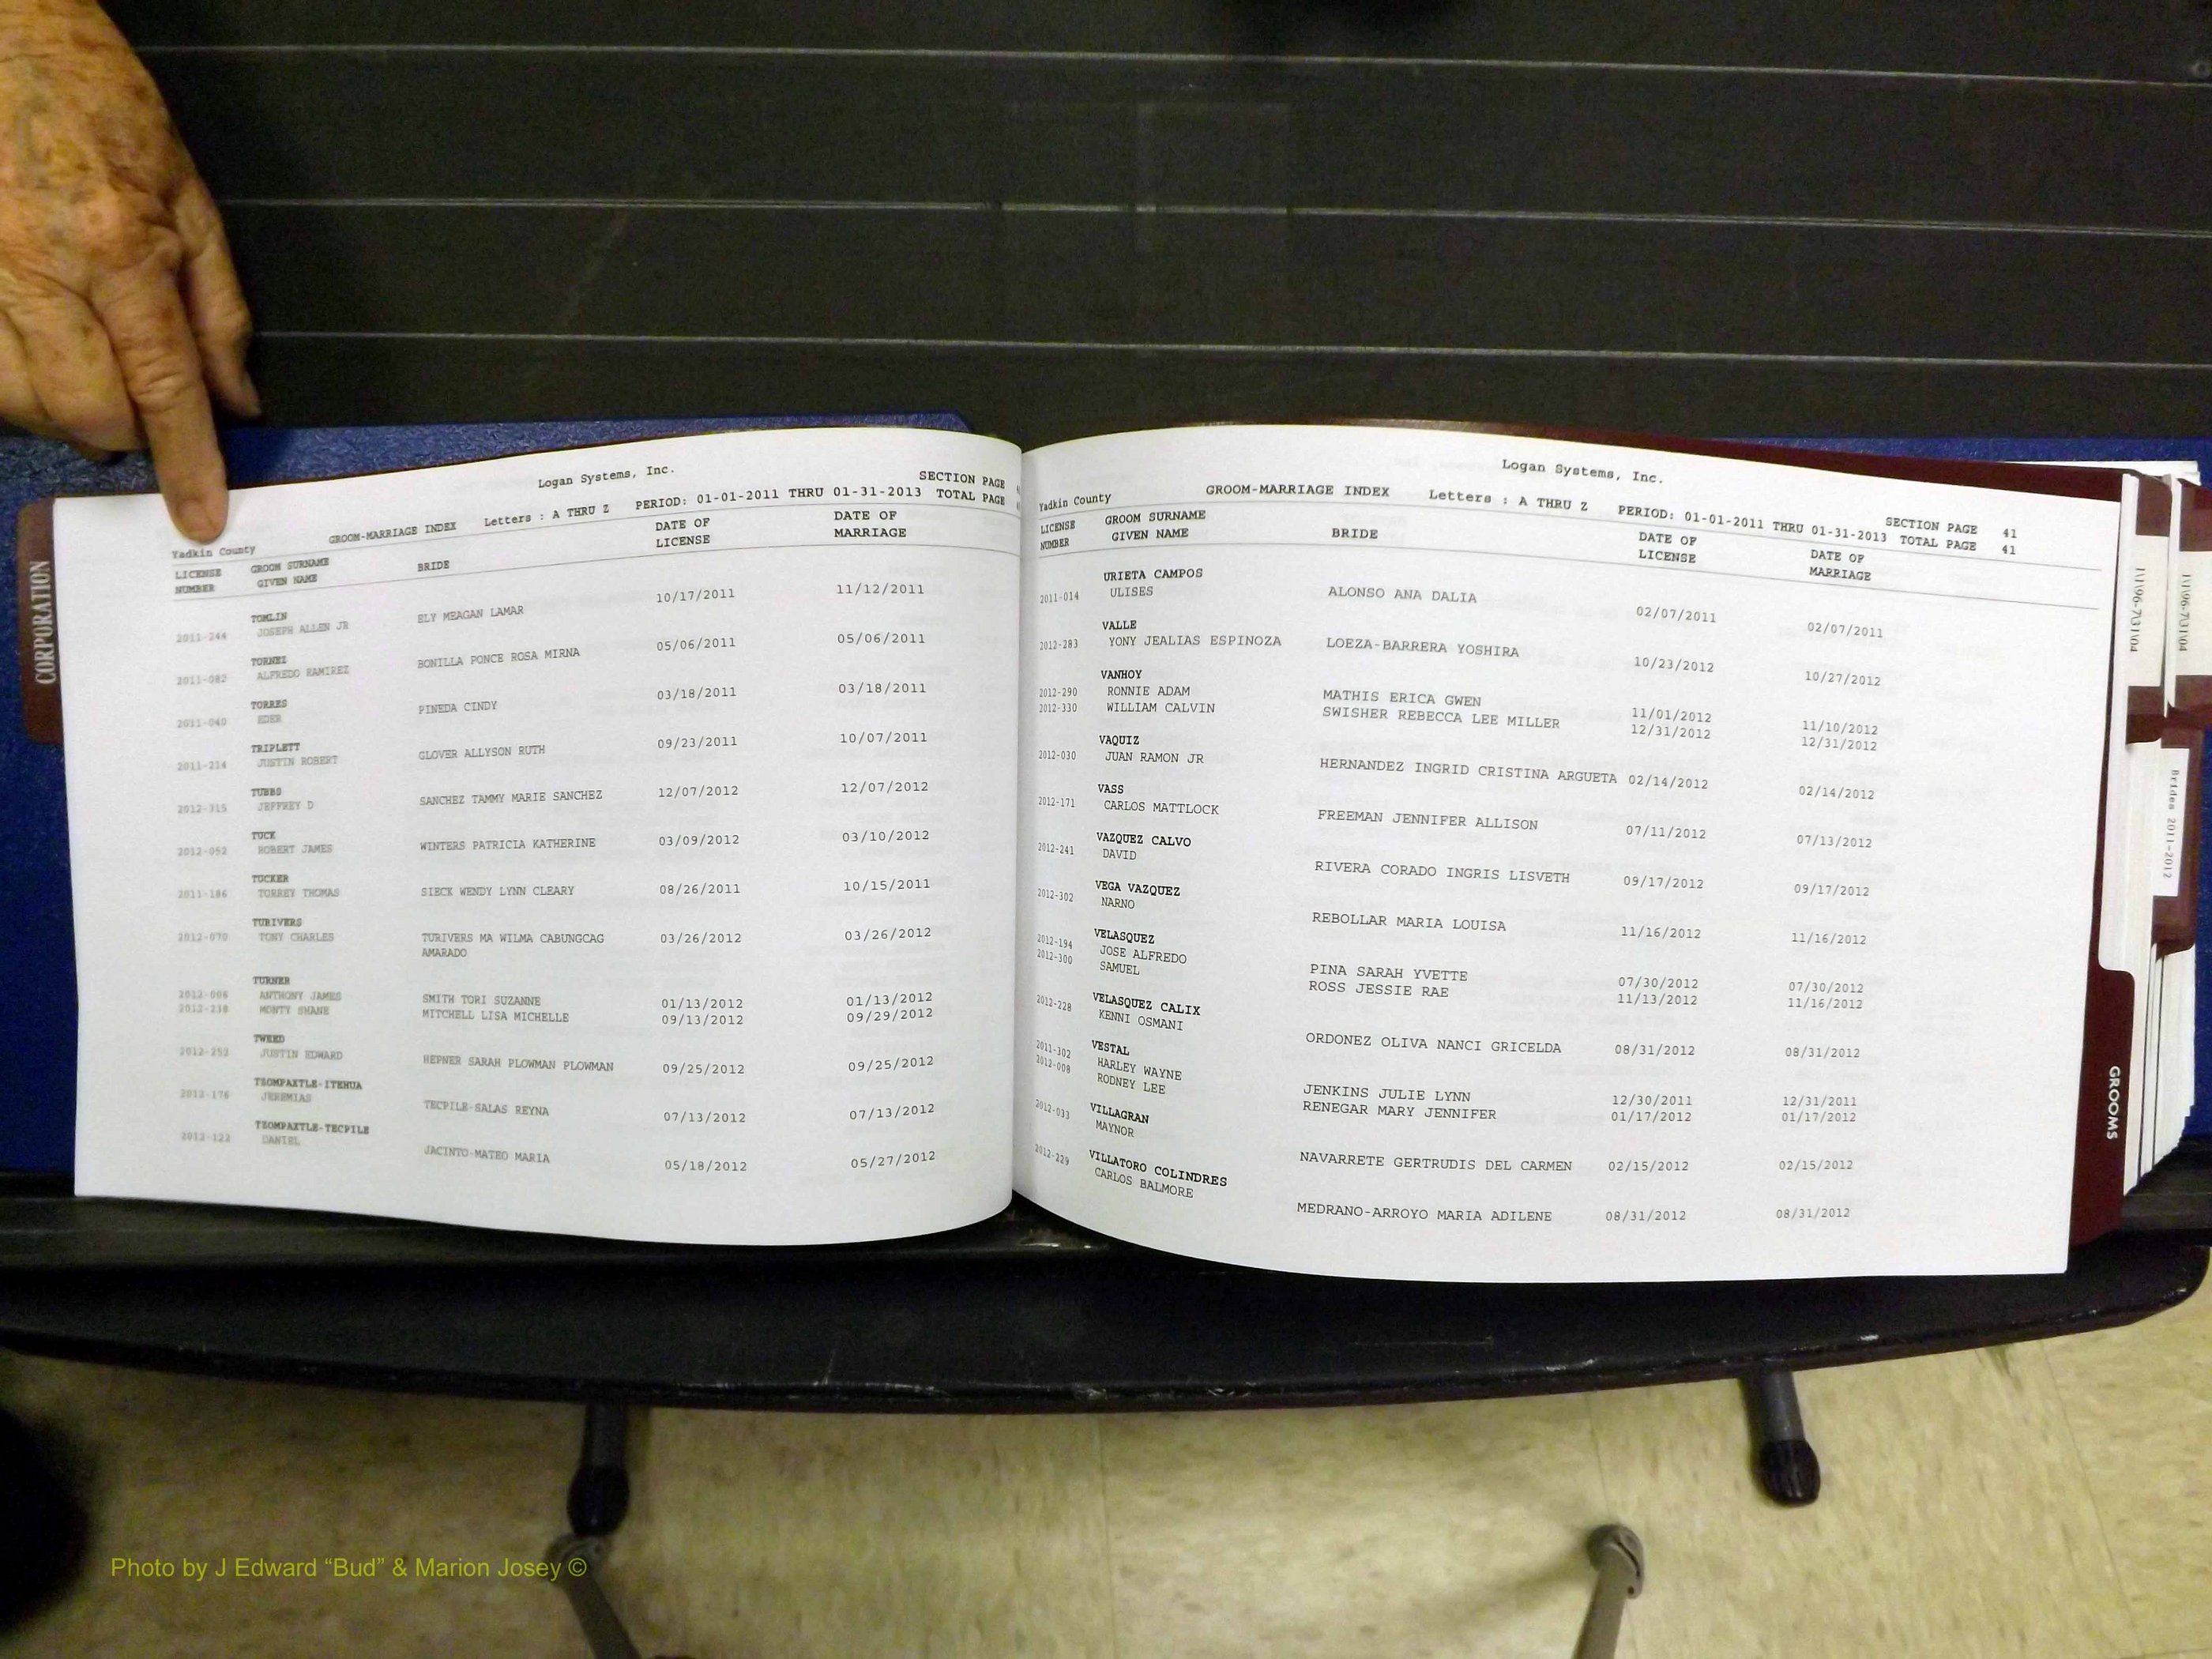 CORPORATION
Logan Systems, Inc.
SECTION PAGE
Yadkin County GROOM-MARRIAGE INDEX Letters : A THRU Z PERIOD: 01-01-2011 THRU 01-31-2013 TOTAL PAGE
LICENSE NUMBER GROOM SURNAME GIVEN NAME BRIDE DATE OF LICENSE DATE OF MARRIAGE
TOMLIN
2011-244 JOSEPH ALLEN JR ELY MEAGAN LAMAR 10/17/2011 11/12/2011
TORNEZ
2011-082 ALFREDO RAMIREZ BONILLA PONCE ROSA MIRNA 05/06/2011 05/06/2011
TORRES
2011-040 EDER PINEDA CINDY 03/18/2011 03/18/2011
TRIPLETT
2011-214 JUSTIN ROBERT GLOVER ALLYSON RUTH 09/23/2011 10/07/2011
TUBBS
2012-315 JEFFREY D SANCHEZ TAMMY MARIE SANCHEZ 12/07/2012 12/07/2012
TUCK
2012-052 ROBERT JAMES WINTERS PATRICIA KATHERINE 03/09/2012 03/10/2012
TUCKER
2011-186 TORREY THOMAS SIECK WENDY LYNN CLEARY 08/26/2011 10/15/2011
TURIVERS
2012-070 TONY CHARLES TURIVERS MA WILMA CABUNGCAG 03/26/2012 03/26/2012
AMARADO
TURNER
2012-006 ANTHONY JAMES SMITH TORI SUZANNE 01/13/2012 01/13/2012
2012-238 MONTY SHANE MITCHELL LISA MICHELLE 09/13/2012 09/29/2012
TWEED
2012-253 JUSTIN EDWARD HEPNER SARAH PLOWMAN PLOWMAN 09/25/2012 09/25/2012
TZOMPAXTLE-ITEHUA
2012-176 JEREMIAS TECPILE-SALAS REYNA 07/13/2012 07/13/2012
TZOMPAXTLE-TECPILE
2012-122 DANIEL JACINTO-MATEO MARIA 05/18/2012 05/27/2012
Logan Systems, Inc.
SECTION PAGE 41
Yadkin County GROOM-MARRIAGE INDEX Letters : A THRU Z PERIOD: 01-01-2011 THRU 01-31-2013 TOTAL PAGE 41
LICENSE NUMBER GROOM SURNAME GIVEN NAME BRIDE DATE OF LICENSE DATE OF MARRIAGE
URIETA CAMPOS
2011-014 ULISES ALONSO ANA DALIA 02/07/2011 02/07/2011
VALLE
2012-283 YONY JEALIAS ESPINOZA LOEZA-BARRERA YOSHIRA 10/23/2012 10/27/2012
VANHOY
2012-290 RONNIE ADAM MATHIS ERICA GWEN 11/01/2012 11/10/2012
2012-330 WILLIAM CALVIN SWISHER REBECCA LEE MILLER 12/31/2012 12/31/2012
VAQUIZ
2012-030 JUAN RAMON JR HERNANDEZ INGRID CRISTINA ARGUETA 02/14/2012 02/14/2012
VASS
2012-171 CARLOS MATTLOCK FREEMAN JENNIFER ALLISON 07/11/2012 07/13/2012
VAZQUEZ CALVO
2012-241 DAVID RIVERA CORADO INGRIS LISVETH 09/17/2012 09/17/2012
VEGA VAZQUEZ
2012-302 NARNO REBOLLAR MARIA LOUISA 11/16/2012 11/16/2012
VELASQUEZ
2012-194 JOSE ALFREDO PINA SARAH YVETTE 07/30/2012 07/30/2012
2012-300 SAMUEL ROSS JESSIE RAE 11/13/2012 11/16/2012
VELASQUEZ CALIX
2012-228 KENNI OSMANI ORDONEZ OLIVA NANCI GRICELDA 08/31/2012 08/31/2012
VESTAL
2011-302 HARLEY WAYNE JENKINS JULIE LYNN 12/30/2011 12/31/2011
2012-008 RODNEY LEE RENEGAR MARY JENNIFER 01/17/2012 01/17/2012
VILLAGRAN
2012-033 MAYNOR NAVARRETE GERTRUDIS DEL CARMEN 02/15/2012 02/15/2012
VILLATORO COLINDRES
2012-229 CARLOS BALMORE MEDRANO-ARROYO MARIA ADILENE 08/31/2012 08/31/2012
Brides 2011-2012
GROOMS
Photo by J Edward “Bud” & Marion Josey ©